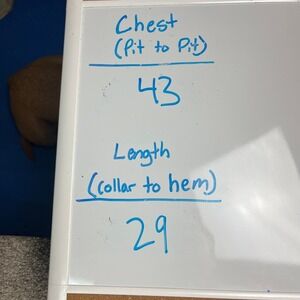 Chest
(Pit to Pit)
43
Length
(collar to hem)
29